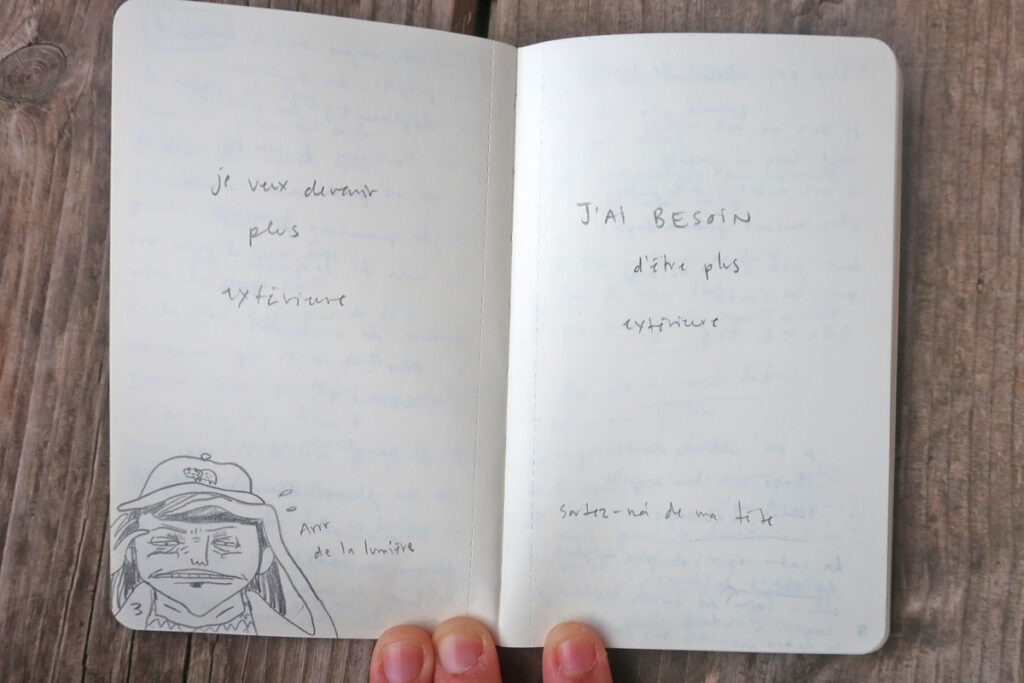 je veux devenir
plus
extérieure
Avir
de la lumière
3
J'AI BESOIN
d'être plus
extérieure
sortez-moi de ma tête